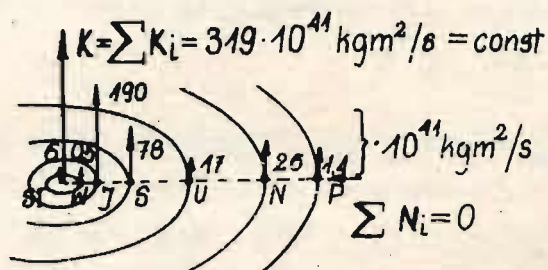 K=∑K_i = 319·10⁴¹ kgm²/s = const
190
6 05 78 17 26 } ·10⁴¹ kgm²/s
J S U N P
∑ N_i = 0